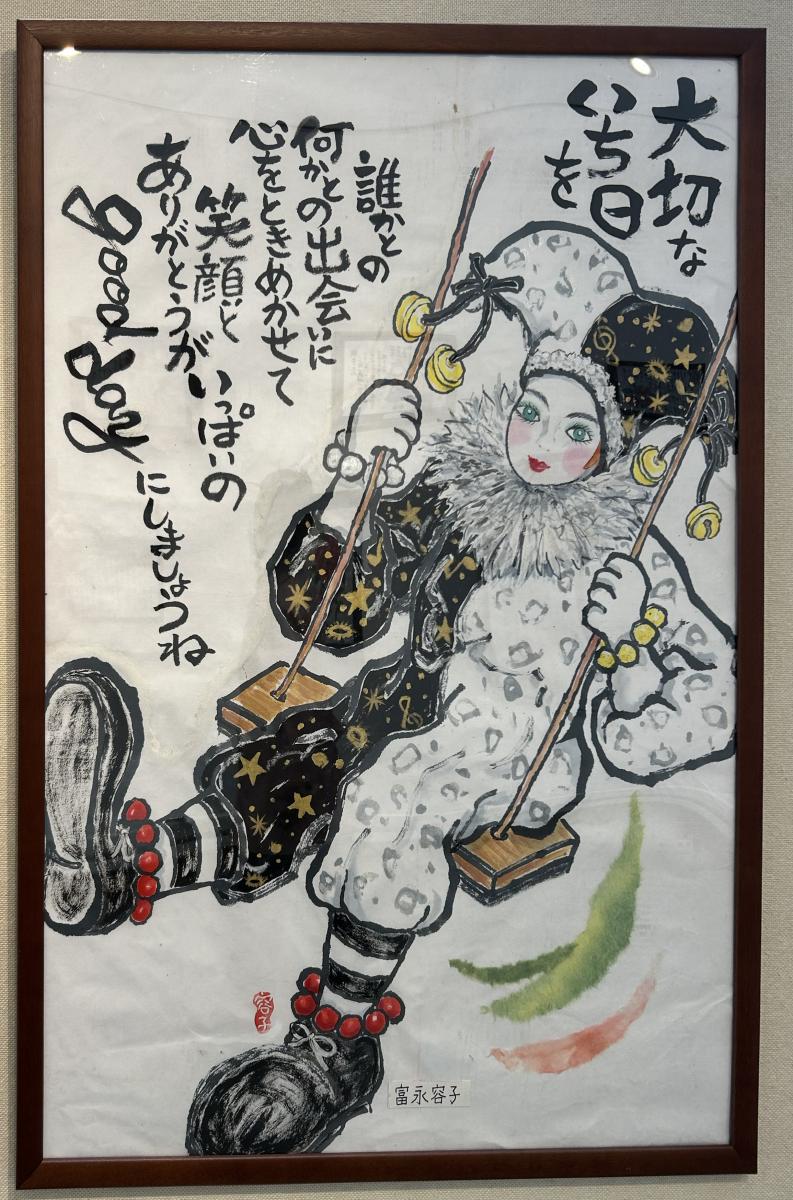 大切な
いち日
を
誰かとの
何かとの出会いに
心をときめかせて
笑顔と
ありがとうが
いっぱいの
Good Day
にしましょうね
容子
富永容子